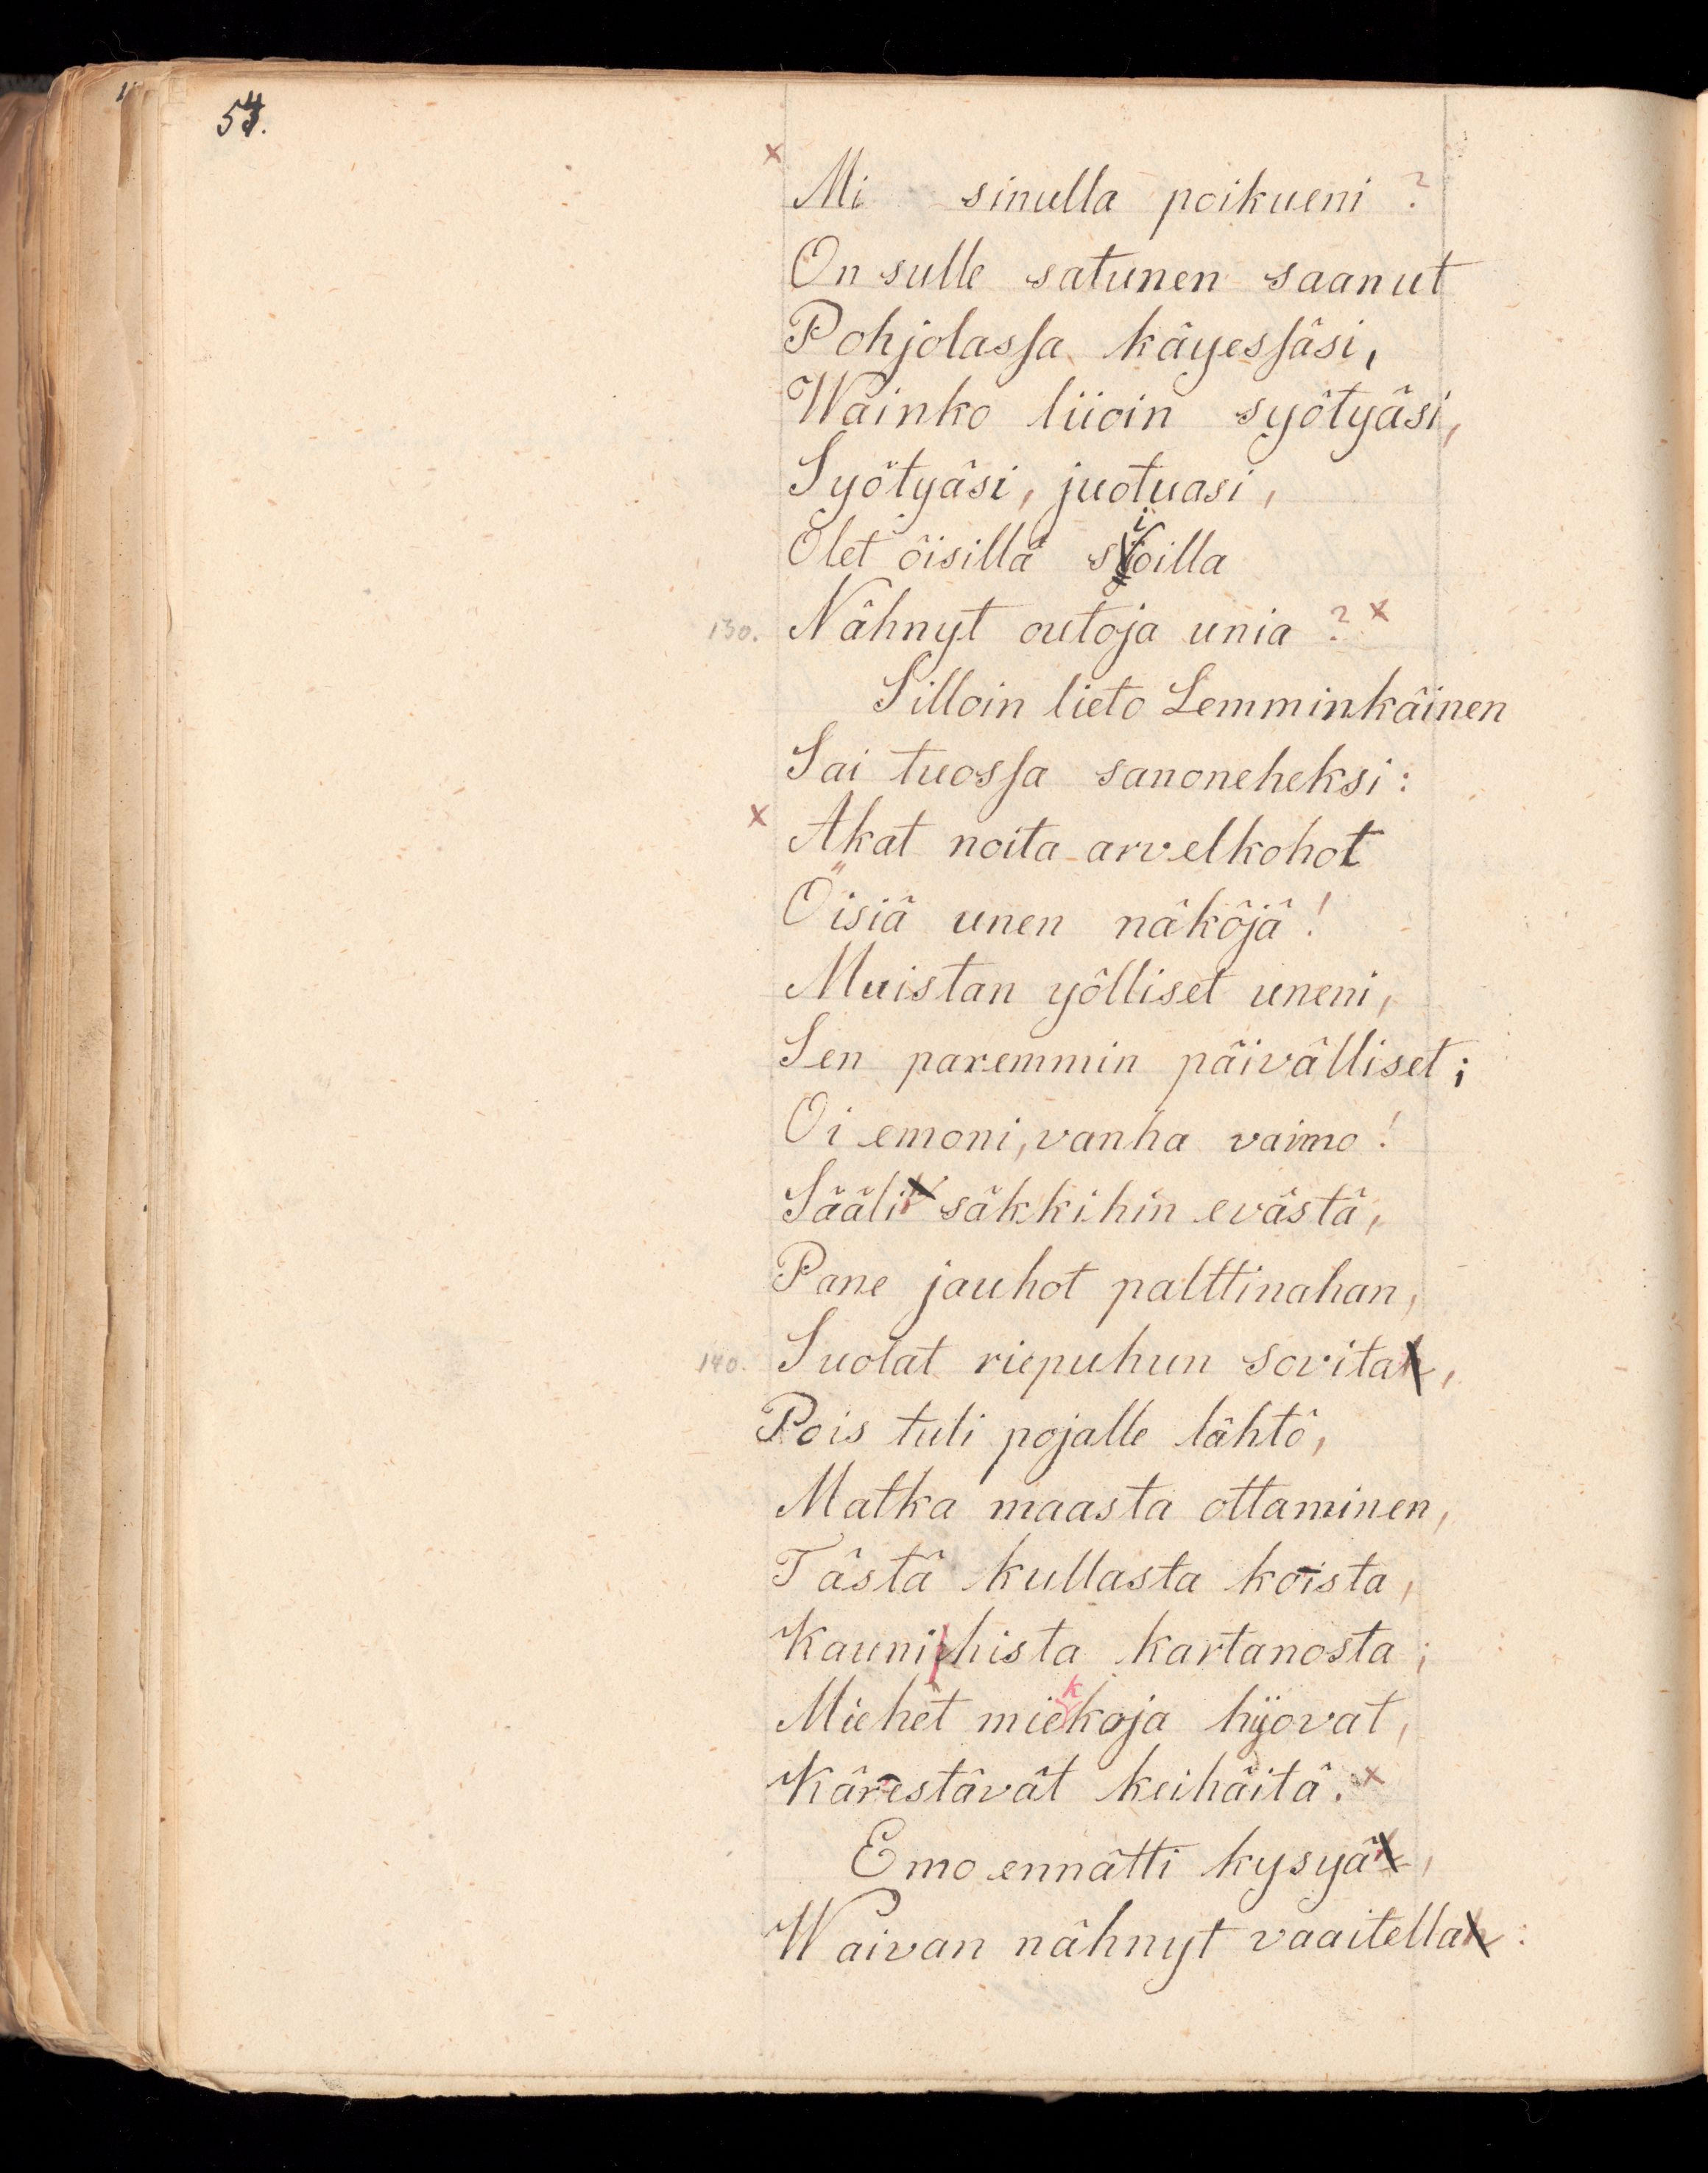 54.
× Mi sinulla poikueni ?
On sulle satunen saanut
Pohjolassa käyessäsi,
Wainko liioin syötyäsi,
Syötyäsi, juotuasi,
Olet öisillä sioilla
130. Nähnyt outoja unia ? ×
Silloin lieto Lemminkäinen
Sai tuossa sanoneheksi :
× Akat noita arvelkohot
Öisiä unen näköjä !
Muistan yölliset uneni,
Sen paremmin päivälliset ;
Oi emoni, vanha vaimo !
Sääli säkkihin evästä,
Pane jauhot palttinahan,
140. Suolat riepuhun sovita,
Pois tuli pojalle lähtö,
Matka maasta ottaminen,
Tästä kullasta koista,
Kaunihista kartanosta ;
Miehet miekkoja hijovat,
Kärestävät keihäitä. ×
Emo ennätti kysyä,
Waivan nähnyt vaaitella :